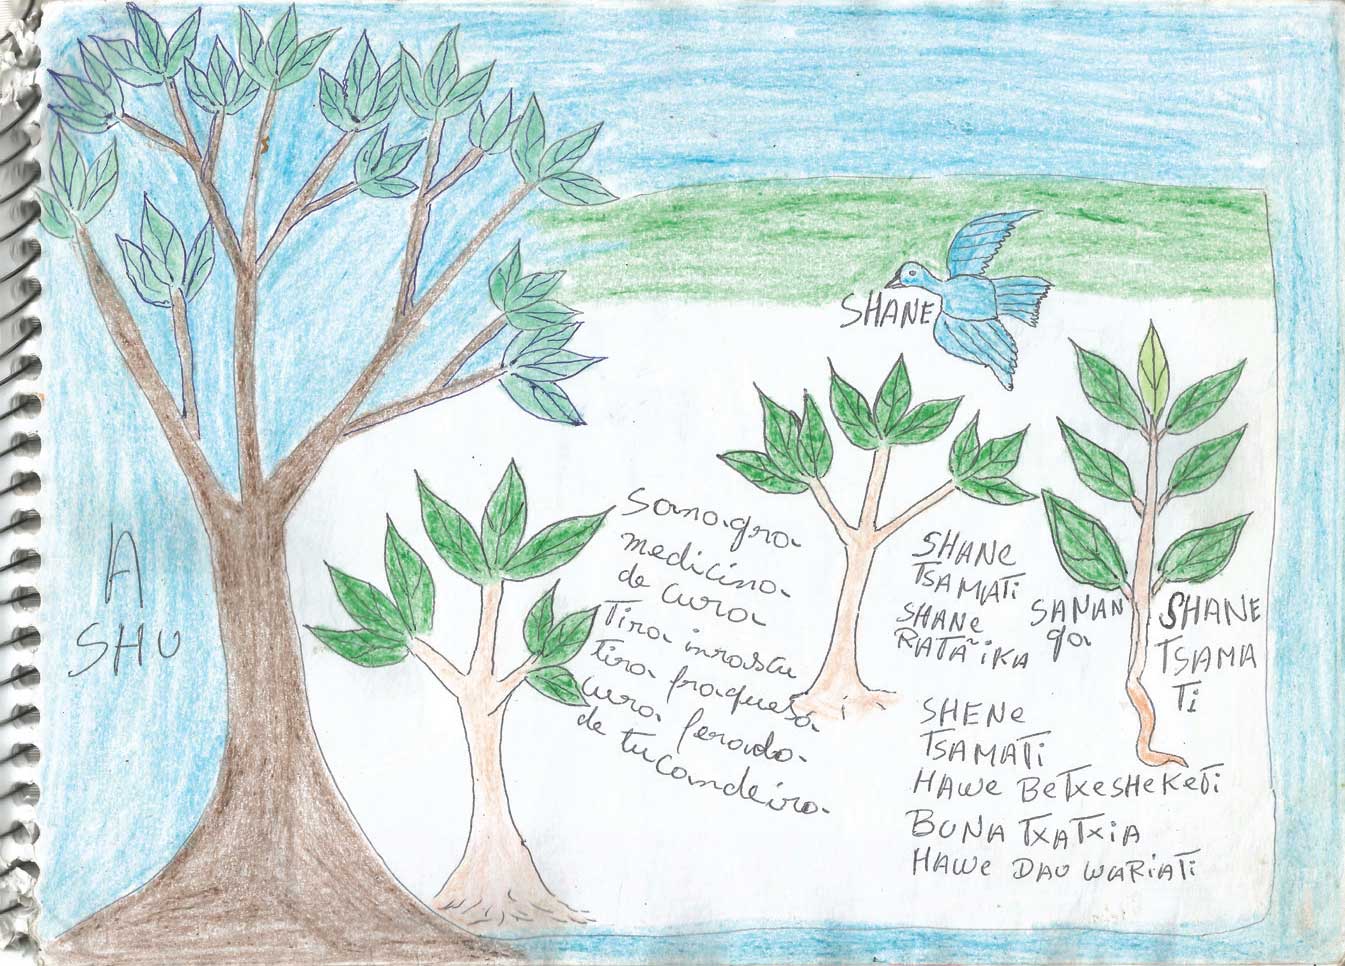 A
SHU
SHANE
sanagra
medicina
de cura
Tira inrascu
tira fraquesa
cura ferada
de tucandeira
SHANE
TSAMATI
SHANE
RATÃIKA
SANAN
ga
SHANE
TSAMA
Ti
SHENE
TSAMATi
HAWE BeTxesHeKeTi
BUNA TXATXIA
HAWE DAU WARIATI